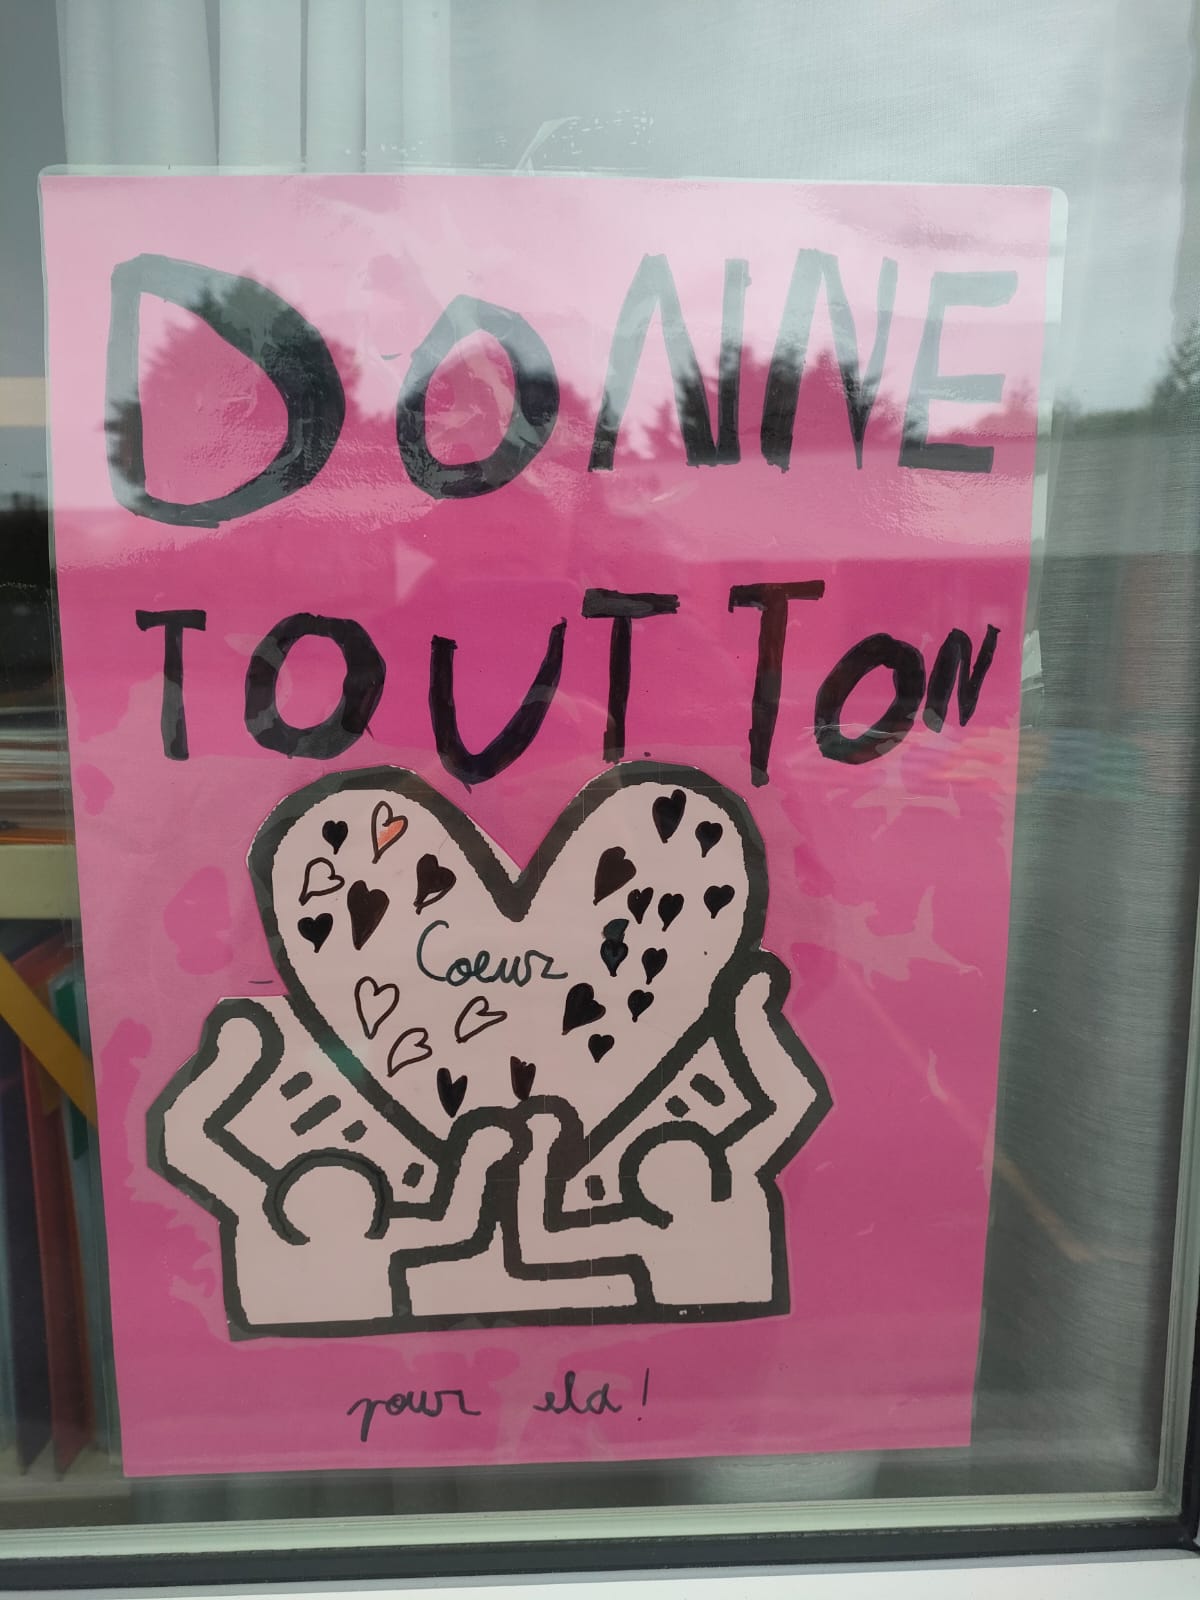 DONNE
TOUT TON
Coeur
pour ela !